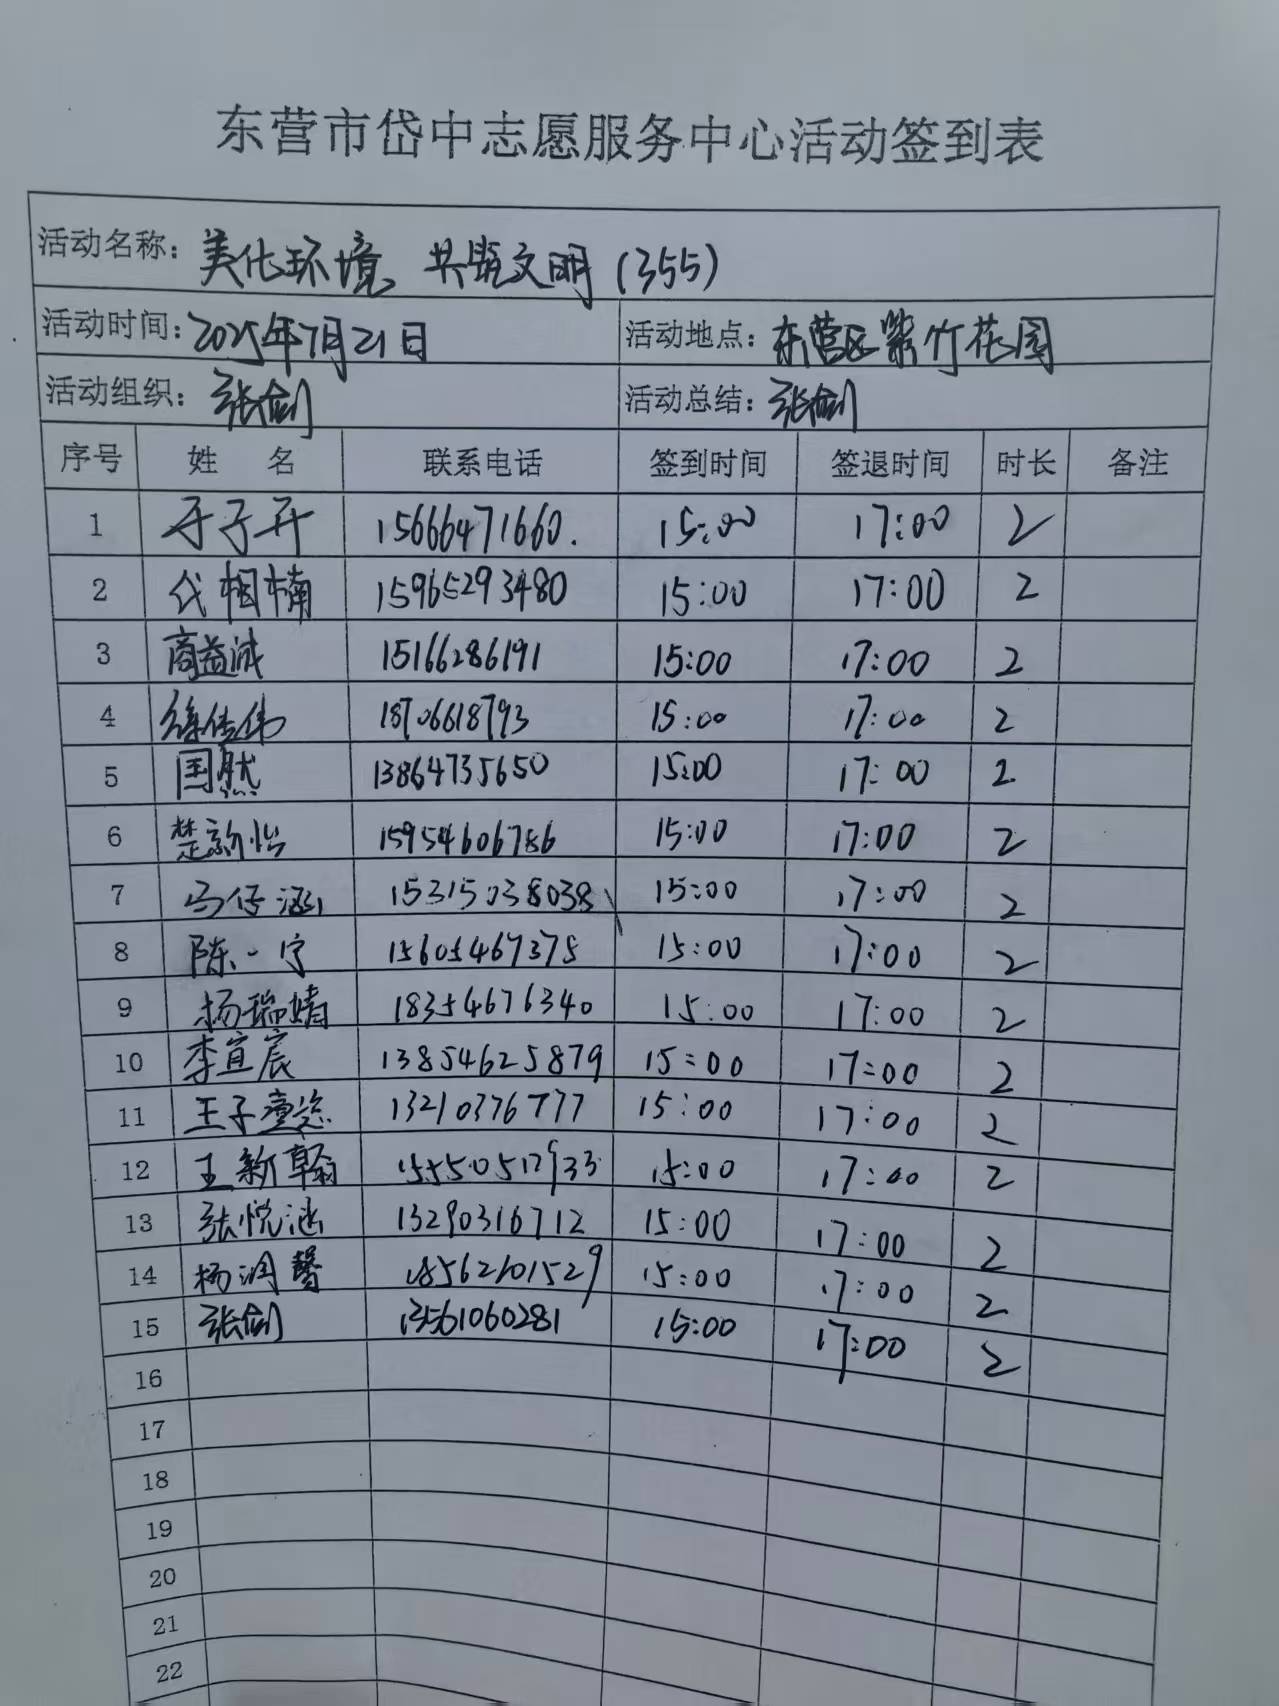 东营市岱中志愿服务中心活动签到表
活动名称：美化环境 共筑文明（355）
活动时间：2025年7月21日 活动地点：东营区紫竹花园
活动组织：张剑 活动总结：张剑
序号 姓 名 联系电话 签到时间 签退时间 时长 备注
1 于子开 15666471660. 15:00 17:00 2
2 代相楠 15965293480 15:00 17:00 2
3 商益诚 15166286191 15:00 17:00 2
4 徐传伟 18706618793 15:00 17:00 2
5 国然 13864735650 15:00 17:00 2
6 楚新怡 15954606786 15:00 17:00 2
7 冯仔涵 15315038038 15:00 17:00 2
8 陈一宁 15605467375 15:00 17:00 2
9 杨瑞婧 18354676340 15:00 17:00 2
10 李宣宸 13854625879 15:00 17:00 2
11 王子 13210376777 15:00 17:00 2
12 王新翰 15550517933 15:00 17:00 2
13 张悦涵 13290316712 15:00 17:00 2
14 杨润馨 18562601529 15:00 17:00 2
15 张剑 13561060281 15:00 17:00 2
16
17
18
19
20
21
22